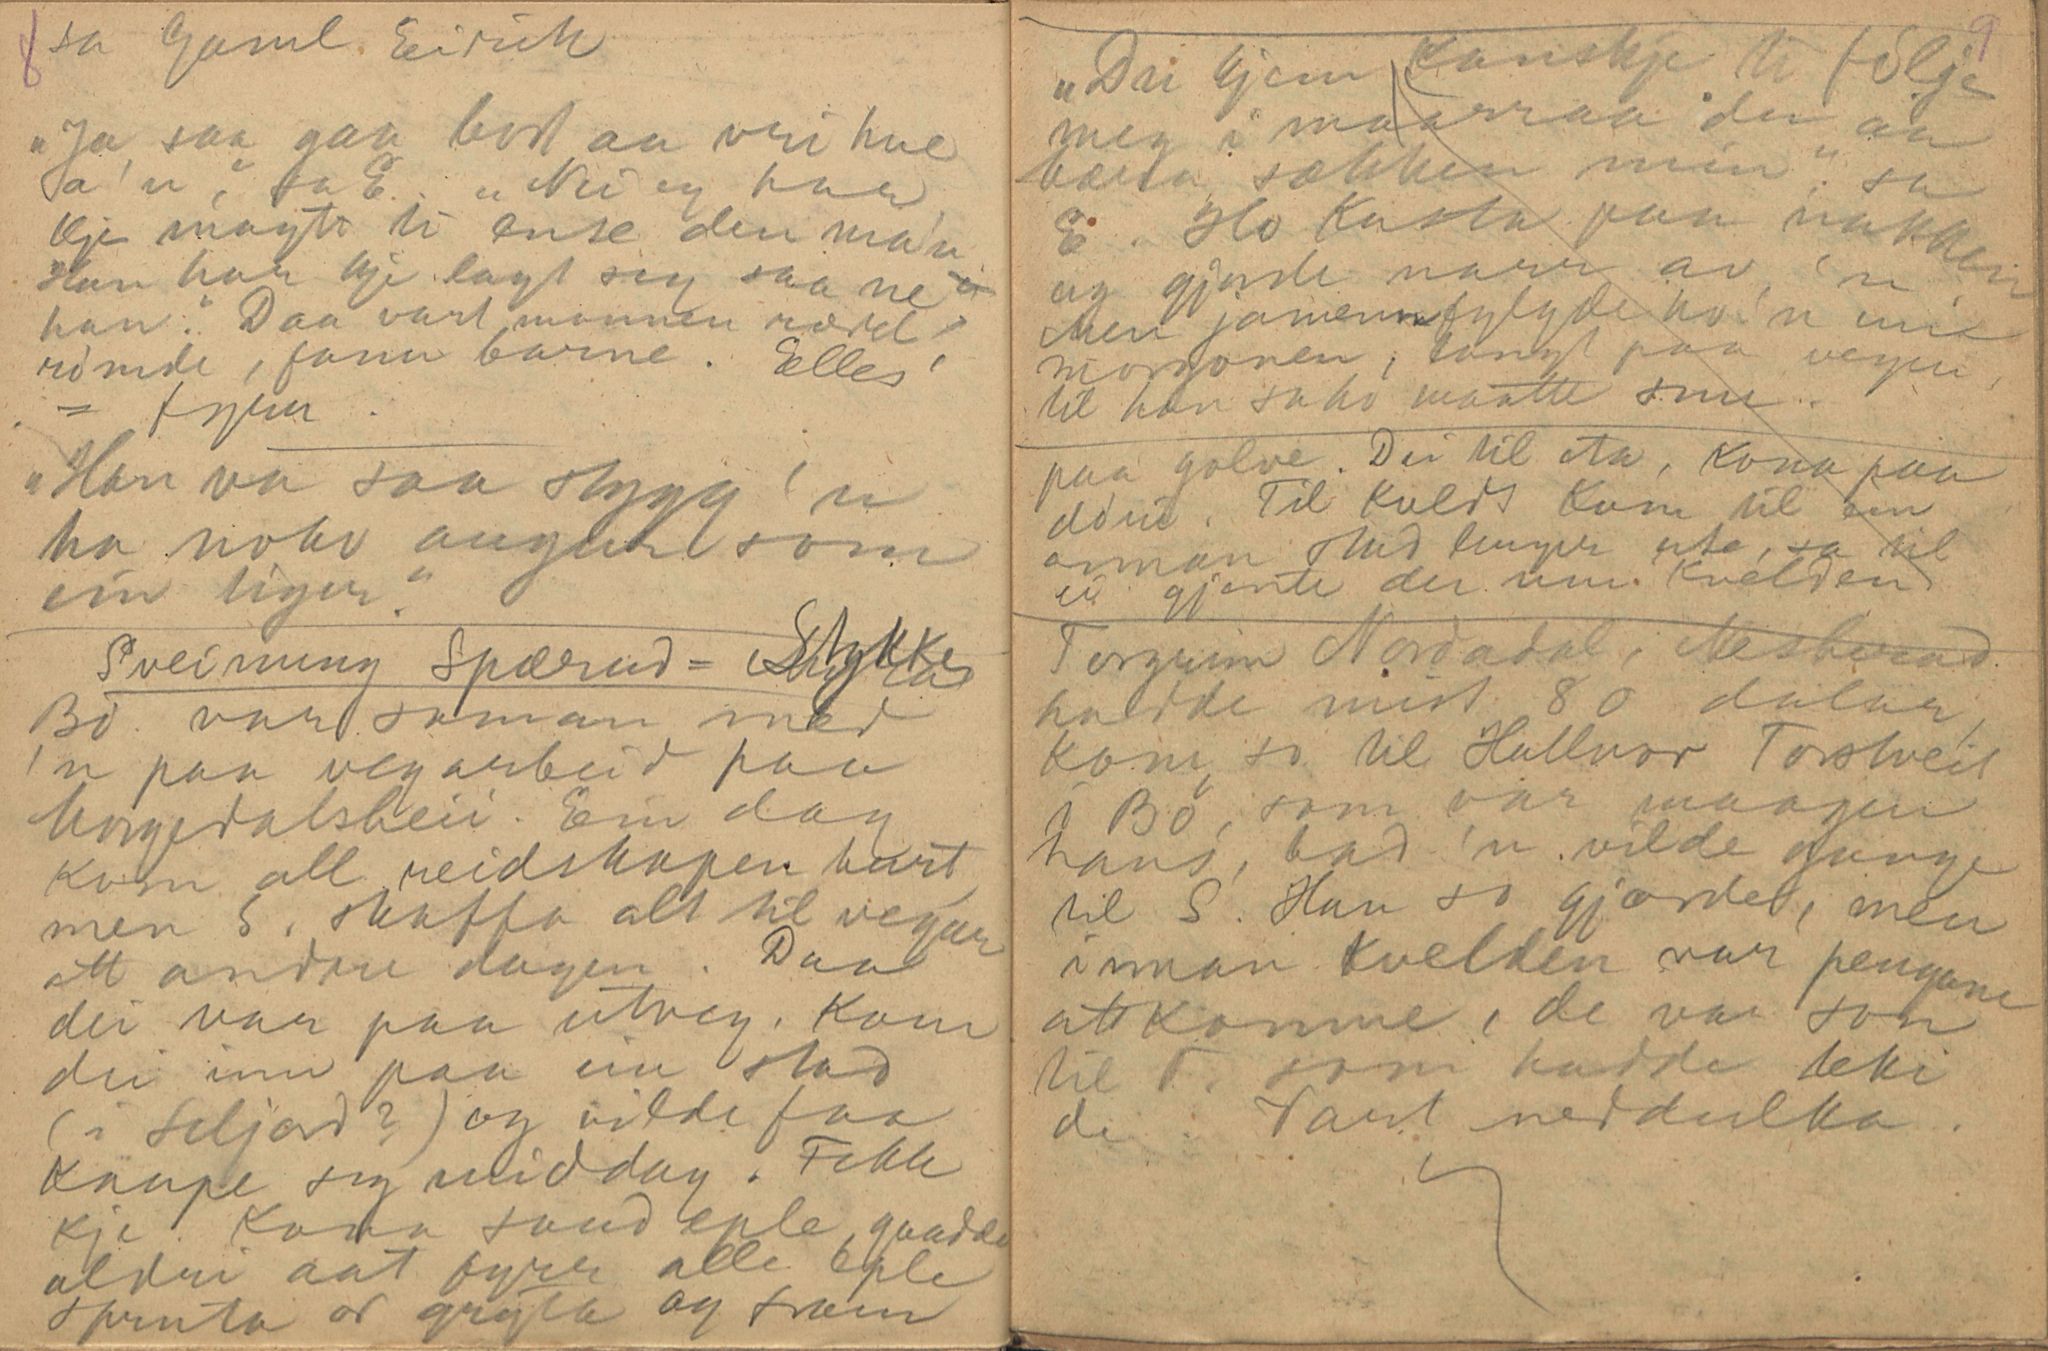 8
sa Gaml Eirik
"Ja saa gaa bort aa vri hue
a 'n", sa E. "Nei eg har
kje magt ti ense den ma'n
Han har kje lagt seg saa ne
han." Daa vart mannen rædd,
rømde, fann barne. Elles
= fyrr.
"Han va saa stygg 'n
ha noko augur som
ein tiger."
Sveinung Spærud = Stykke
Bø var saman med
'n paa vegarbeid paa
Morgedalsheii. Ein dag
kom all reidskapen burt,
men S. skaffa alt til vegar
att andre dagen. Daa
dei var paa utveg, kom
dei inn paa ein stad
(i Seljord?) og vilde faa
kaupe seg middag. Fekk
kje. Kona saud eple, gaadde
aldri aat fyrr alle eple
spruta or gryta og svam
9
"Du kjem kanskje ti følje
meg i maarraa du aa
bæra sekken min," sa
E. Ho kasta paa nakken
og gjorde narr av 'n,
Men jamenn fylgde ho 'n um
morgonen, langt paa vegen,
til han sa ho maatte snu.
paa golve. Dei til eta, kona paa
døri. Til kvelds kom til ein
annan stad lenger ute, sa til
ei gjente der um kvelden
Torgrim Nordadal, Nesherad
hadde mist 80 dalar,
kom so til Hallvor Torstveit
i Bø, som var maagen
hans, bad 'n vilde gange
til S. Han so gjorde, men
innan kvelden var pengane
attkomne, de var son
til T. som hadde teki
de. Vart neddulka.